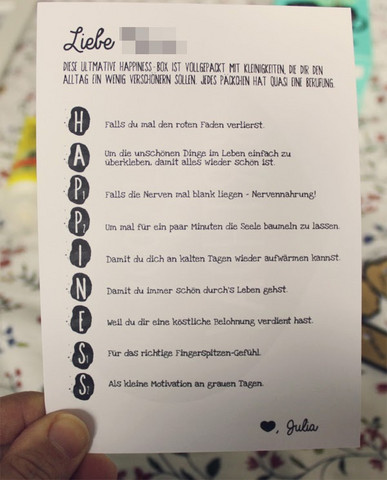 Liebe
DIESE ULTMATIVE HAPPINESS-BOX IST VOLLGEPACKT MIT KLEINIGKEITEN, DIE DIR DEN
ALLTAG EIN WENIG VERSCHÖNERN SOLLEN. JEDES PÄCKCHEN HAT QUASI EINE BERUFUNG.
H Falls du mal den roten Faden verlierst.
A Um die unschönen Dinge im Leben einfach zu
überkleben, damit alles wieder schön ist.
P1 Falls die Nerven mal blank liegen - Nervennahrung!
P2 Um mal für ein paar Minuten die Seele baumeln zu lassen.
I Damit du dich an kalten Tagen wieder aufwärmen kannst.
N Damit du immer schön durch's Leben gehst.
E Weil du dir eine köstliche Belohnung verdient hast.
S1 Für das richtige Fingerspitzen-Gefühl.
S2 Als kleine Motivation an grauen Tagen.
♥, Julia